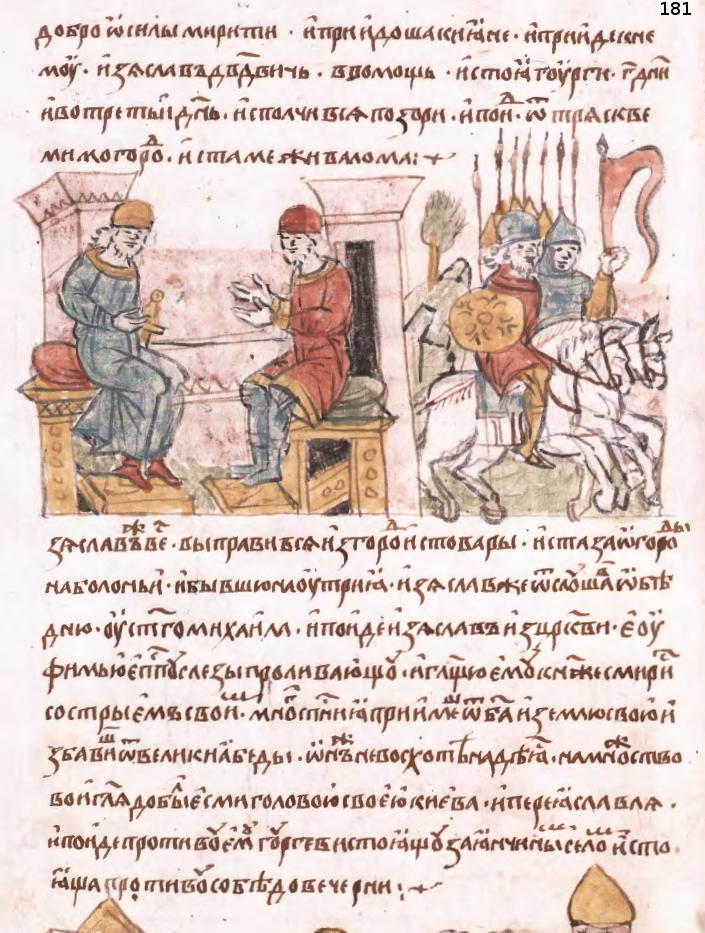 181
добро ѿ силы миритисѧ · и приидоша к нему · и прииде к не
моу · изѧславъ двд҃вичь · в помощь · и стоꙗ гоурги · г҃ дни
и во третьи дн҃ь · исполчивсѧ по зори · и поид ѿ трѧскве
мимо город · и ста межи валома :
зѧславъ же выправивсѧ из города и с товары · и ста за ѿ городы
на болоньи · и бывшю ꙗ оутриꙗ · изѧслав же ѿслоушав ѡбѣ
дню · оу ст҃го михаила · и поиде изѧславъ из цр҃кви · еоу
фимью еп҃поу слезы проливающоу · и гл҃щю емоу кнѧже смирисѧ
со стрыемъ своим · мног сп҃ниꙗ приимеш ѿ ба҃ и землю свою и
збавиш ѿ великиꙗ беды · ѡн же не восхотѣ надѣꙗсѧ на множство
вои гл҃ѧ добыл есми головою своею киева · и переꙗславлѧ ·
и поиде противоу емоу гюргеви стоꙗщоу за ꙗнчиным селом и сто
ꙗша противоу собѣ до вечерни :